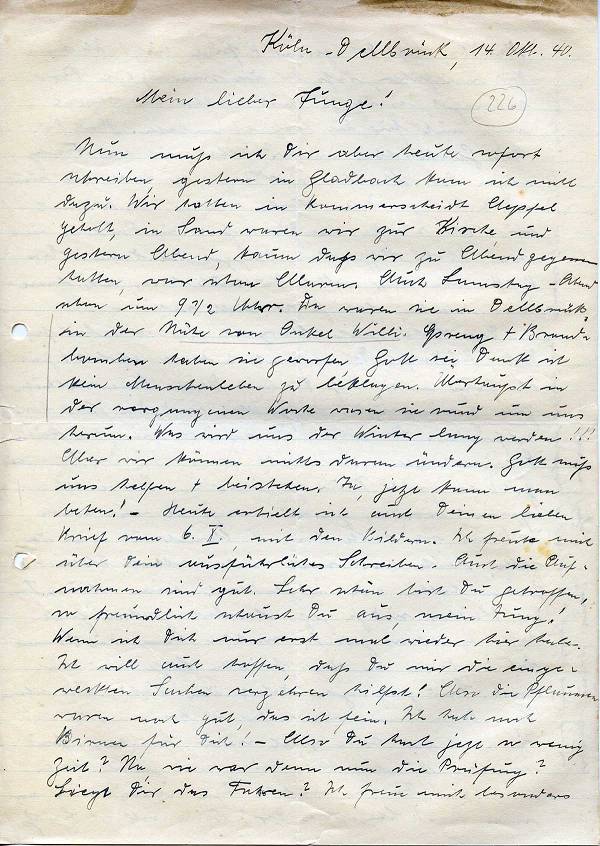 Köln-Dellbrück, 14. Okt. 40.
226
Mein lieber Junge!
Nun muß ich Dir aber heute sofort
schreiben, gestern in Gladbach kam ich nicht
dazu. Wir hatten in Kommerscheidt Aepfel
geholt, in Sand waren wir zur Kirche und
gestern Abend, kaum daß wir zu Abend gegessen
hatten, war schon Alarm. Auch Samstag-Abend
schon um 9 1/2 Uhr. Da waren sie in Dellbrück
in der Nähe von Onkel Willi. Spreng + Brand-
bomben haben sie geworfen Gott sei Dank ist
kein Menschenleben zu beklagen. Überhaupt in
der vergangenen Woche waren sie rund um uns
herum. Was wird uns der Winter lang werden!!!
Aber wir können nichts daran ändern. Gott muß
uns helfen + beistehen. Ja, jetzt kann man
beten! – Heute erhielt ich auch Deinen lieben
Brief vom 6. X. mit den Bildern. Ich freute mich
über Dein ausführliches Schreiben. Auch die Auf-
nahmen sind gut. Sehr schön bist Du getroffen,
so freundlich schaust Du aus, mein Jung!
Wenn ich Dich nur erst mal wieder hier habe.
Ich will auch hoffen, daß Du mir die einge-
weckten Sachen verzehren hilfst! Also die Pflaumen
waren noch gut, das ist fein. Ich hab noch
Birnen für Dich! – Also Du hast jetzt so wenig
Zeit? Na wie war denn nun die Prüfung?
Liegt Dir das Fahren? Ich freue mich besonders